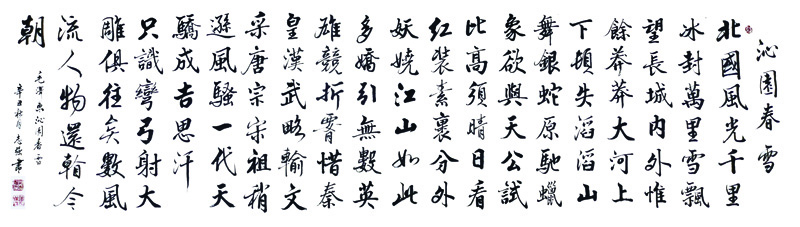 沁園春雪
北國風光千里
冰封萬里雪飄
望長城內外惟
餘莽莽大河上
下頓失滔滔山
舞銀蛇原馳蠟
象欲與天公試
比高須晴日看
紅裝素裹分外
妖嬈江山如此
多嬌引無數英
雄競折腰惜秦
皇漢武略輸文
采唐宗宋祖稍
遜風騷一代天
驕成吉思汗
只識彎弓射大
雕俱往矣數風
流人物還看今
朝
毛澤東沁園春雪
辛丑秋月書